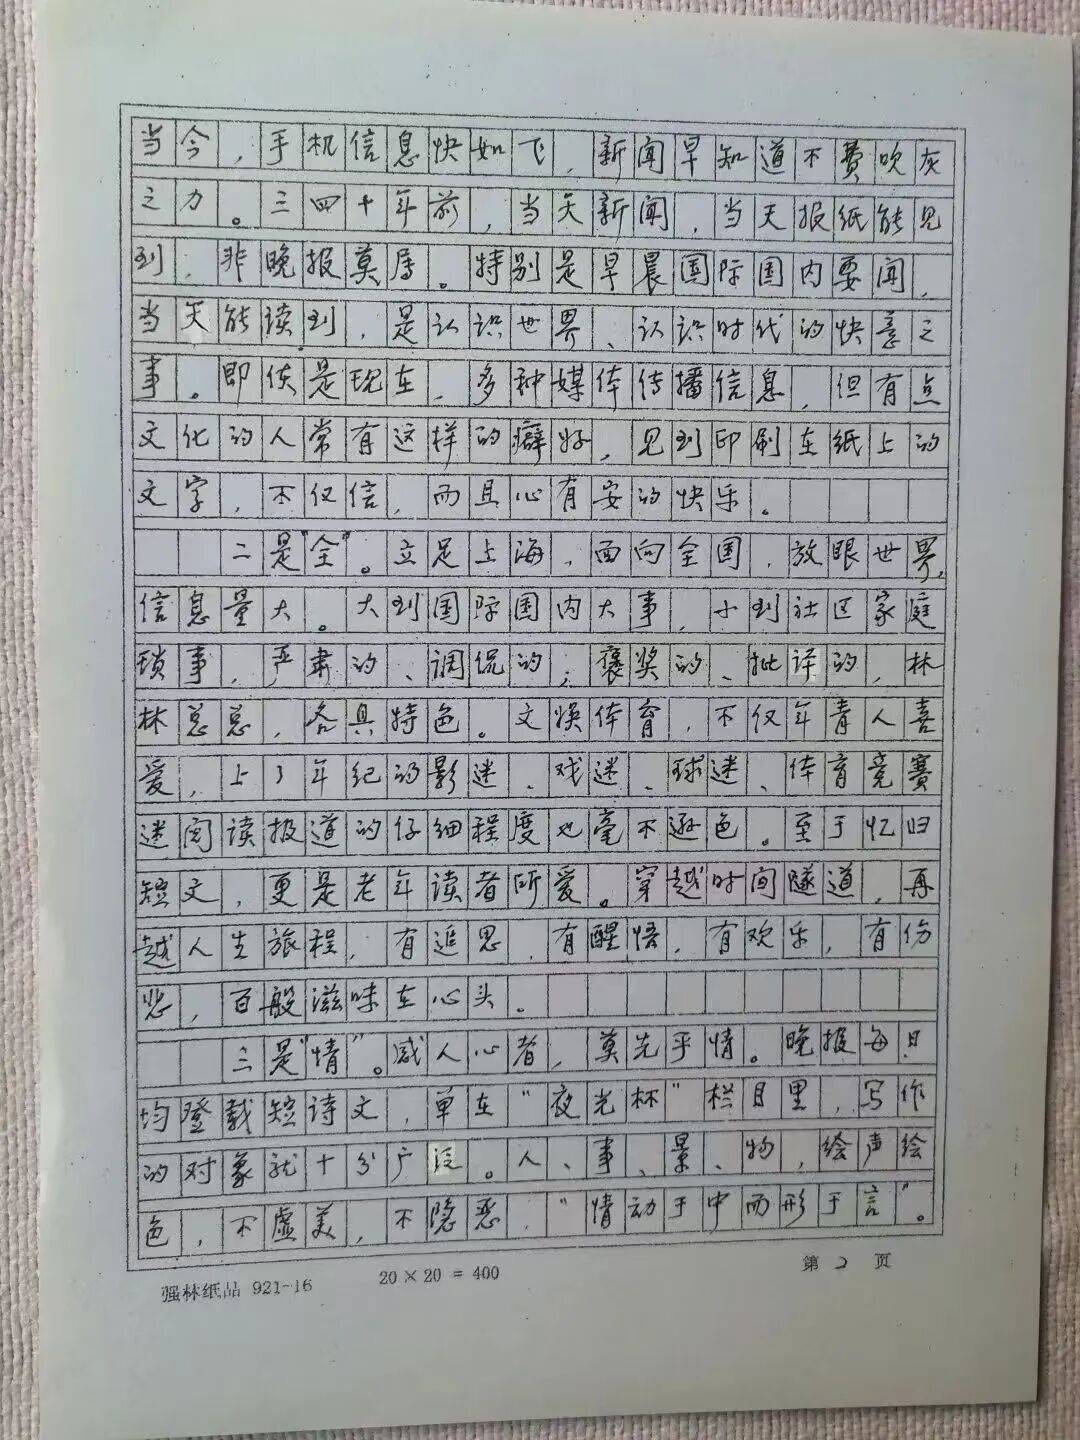 当今，手机信息快如飞，新闻早知道不费吹灰
之力。三四十年前，当天新闻，当天报纸能见
到，非晚报莫属。特别是早晨国际国内要闻，
当天能读到，是认识世界、认识时代的快意之
事。即使是现在，多种媒体传播信息，但有点
文化的人常有这样的癖好，见到印刷在纸上的
文字，不仅信，而且心有安的快乐。
二是“全”。立足上海，面向全国，放眼世界，
信息量大。大到国际国内大事，小到社区家庭
琐事，严肃的、调侃的；褒奖的、批评的，林
林总总，各具特色。文娱体育，不仅年青人喜
爱，上了年纪的影迷、戏迷、球迷、体育竞赛
迷阅读报道的仔细程度也毫不逊色。至于忆旧
短文，更是老年读者所爱。穿越时间隧道，再
越人生旅程，有追思，有醒悟，有欢乐，有伤
悲，百般滋味在心头。
三是“情”。感人心者，莫先乎情。晚报每日
均登载短诗文，单在“夜光杯”栏目里，写作
的对象就十分广泛。人、事、景、物，绘声绘
色，不虚美，不隐恶，“情动于中而形于言”。
强林纸品 921-16 20×20=400 第2页